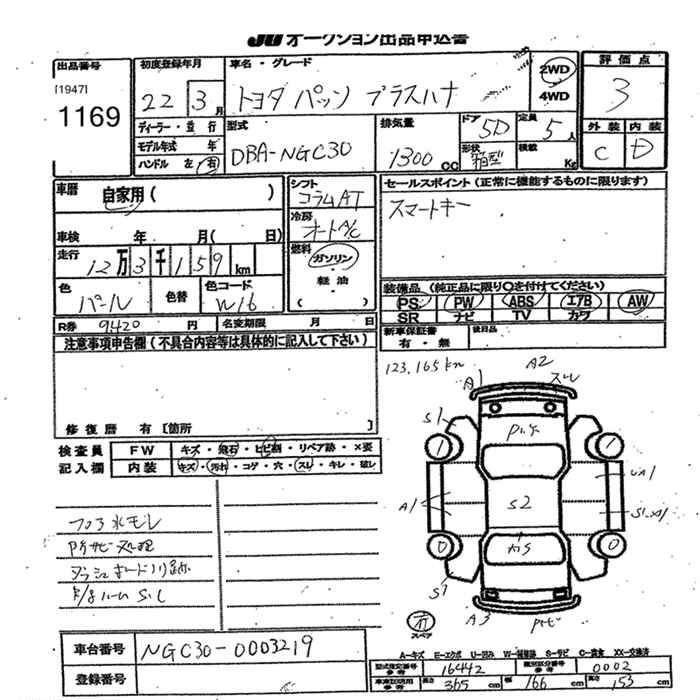 JU オークション出品申込書
出品番号
[1947]
1169
初度登録年月
22 3月
ディーラー・並行
モデル年式 年
ハンドル 左 右
車名・グレード
トヨタ パッソ プラスハナ
2WD
4WD
評価点
3
外装 内装
C D
型式
DBA-NGC30
排気量
1300 CC
ドア
5D
形状
箱型
定員
5人
積載
Kg
車歴
自家用( )
車検 年 月( 日)
走行
12万3千159km
色
パール
色替
色コード
W16
R券 9420 円
名変期限 月 日
シフト
コラムAT
冷房
オートA/C
燃料
ガソリン
・軽油・
セールスポイント(正常に機能するものに限ります)
スマートキー
装備品 (純正品に限り○を付けてください)
PS PW ABS エアB AW
SR ナビ TV カワ
新車保証書
有・無
後日品
注意事項申告欄(不具合内容等は具体的に記入して下さい)
修復歴 有[箇所 ]
検査員
記入欄
FW キズ・飛石・ヒビ割・リペア跡・×要
内装 キズ・汚れ・コゲ・穴・スレ・キレ・破レ
123,165km
A1
A2
スレ
S1
1
1
UA1
A1
S2
0
0
S1
A3
スペア
車台番号
NGC30-0003219
登録番号
A-キズ E-エクボ U-凹み W-補修跡 S-サビ C-腐食 XX-交換済
型式指定番号
参考
16442
類別区分番号
参考
0002
長さ 365 cm
幅 166 cm
高さ 153 cm